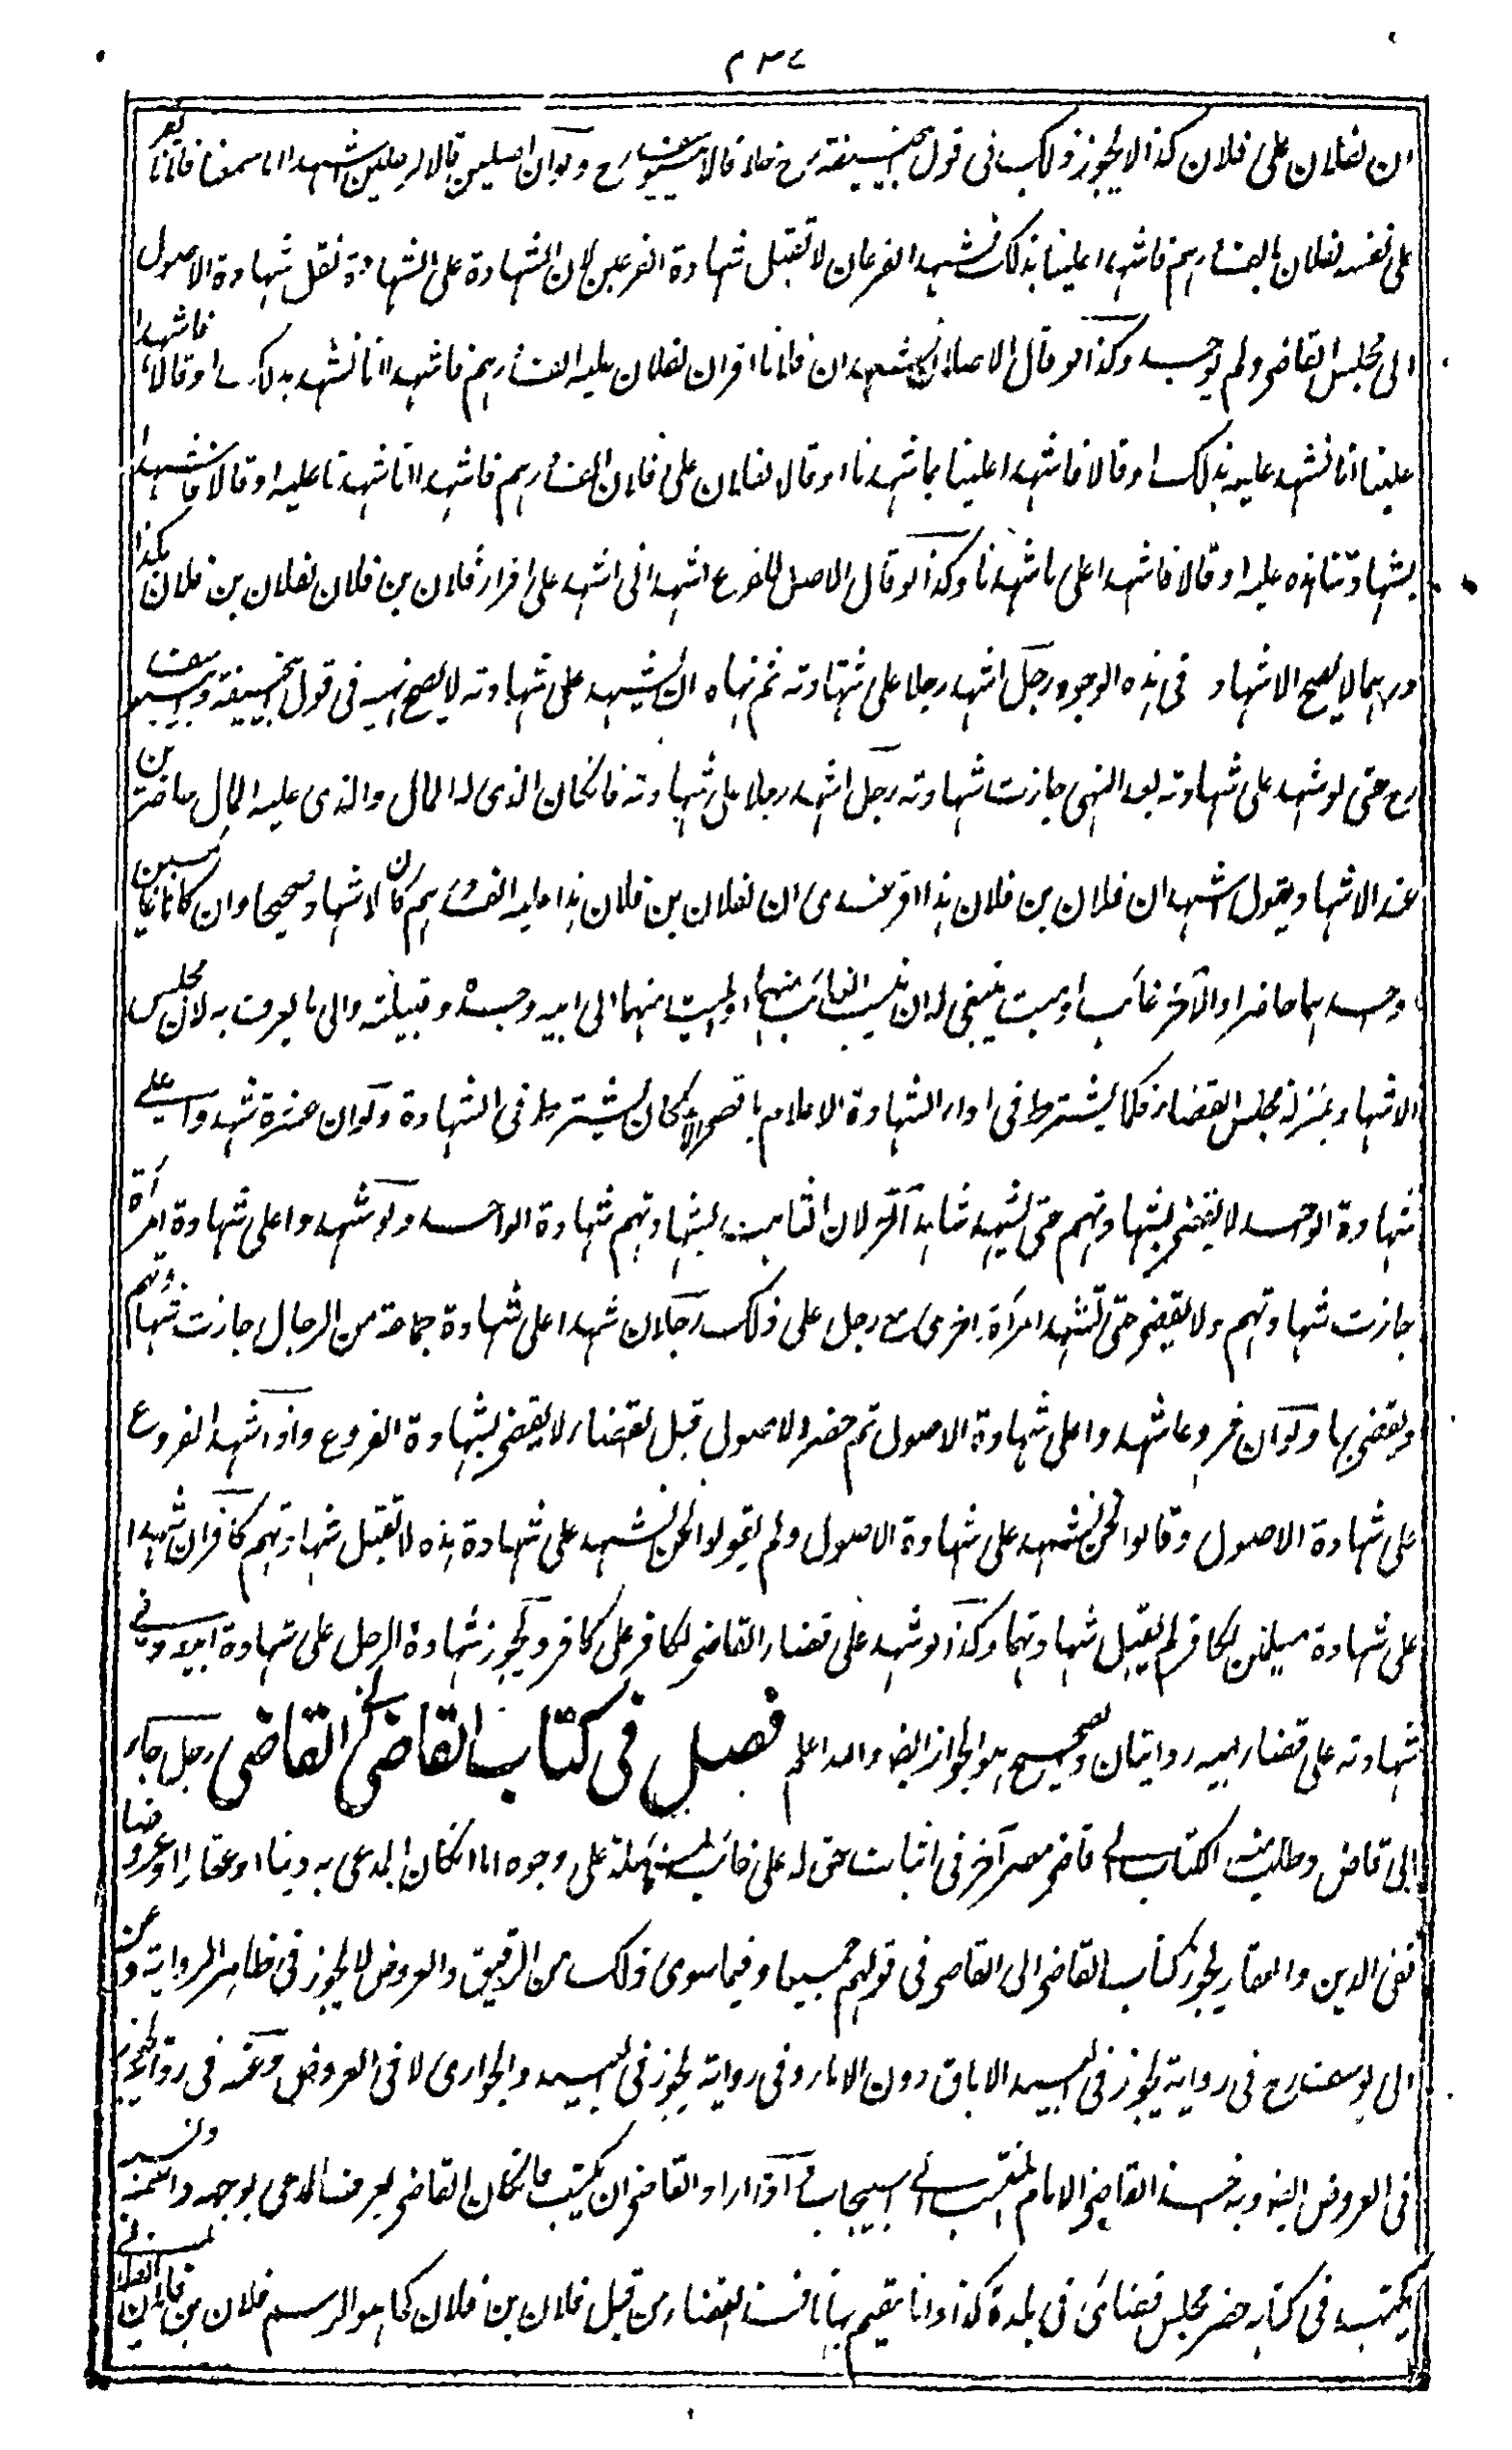 ان لفلان على فلان كذا لا يجوز ذلك فى قول ابيحنيفة رح خلافا لابيوسف رح ولو ان اصلين قالا لرجلين اشهدا انا سمعنا فلانا يقر
على نفسه لفلان بالف درهم فاشهدا علينا بذلك فشهد الفرعان لا تقبل شهادة الفرعين لان الشهادة على الشهادة نقل شهادة الاصول
الى مجلس القاضى ولم يوجد وكذا لو قال الاصلان نشهد ان فلانا اقر ان لفلان عليه الف درهم فاشهدا انا نشهد بذلك او قالا فاشهدا
علينا انا نشهد عليه بذلك او قالا فاشهدا علينا بما شهدنا او قال لفلان على فلان الف درهم فاشهدا انا شهدنا عليه او قالا فاشهدا
بشهادتنا هذه عليه او قالا فاشهدا على ما شهدنا وكذا لو قال الاصل للفرع اشهد انى اشهد على اقرار فلان بن فلان لفلان بن فلان بكذا
درهما لا يصح الاشهاد فى هذه الوجوه رجل اشهد رجلا على شهادته ثم نهاه ان يشهد على شهادته لا يصح نهيه فى قول ابيحنيفة وابيوسف
رح حتى لو شهد على شهادته بعد النهى جازت شهادته رجل اشهد رجلا على شهادته فان كان الذى له المال والذى عليه المال حاضرين
عند الاشهاد يقول اشهد ان فلان بن فلان هذا اقر عندى ان لفلان بن فلان هذا عليه الف درهم كان الاشهاد صحيحا وان كانا غائبين
او احدهما حاضرا والآخر غائب او ميت ينبغى له ان ينسب الغائب منهما او الميت منهما الى ابيه وجده وقبيلته والى ما يعرف به لان مجلس
الاشهاد بمنزلة مجلس القضاء فكما يشترط فى اداء الشهادة الاعلام باقصى الامكان يشترط فى الشهادة ولو ان عشرة شهدوا على
شهادة الواحد لا يقضى بشهادتهم حتى يشهد شاهد آخر لان الثابت بشهادتهم شهادة الواحد ولو شهدوا على شهادة امرأة
جازت شهادتهم ولا يقضى حتى تشهد امرأة اخرى مع رجل على ذلك رجلان شهدا على شهادة جماعة من الرجال جازت شهادتهم
ويقضى بها ولو ان فروعا شهدوا على شهادة الاصول ثم حضر الاصول قبل القضاء لا يقضى بشهادة الفروع واذا شهد الفروع
على شهادة الاصول وقالوا نحن نشهد على شهادة الاصول ولم يقولوا نحن نشهد على شهادة هذه لا تقبل شهادتهم كافران شهدا
على شهادة مسلمين لكافر لم يقبل شهادتهما وكذا لو شهد على قضاء القاضى لكافر على كافر ويجوز شهادة الرجل على شهادة ابيه وفى
شهادته على قضاء ابيه روايتان والصحيح هو الجواز ايضا والله اعلم فصل فى كتاب القاضى الى القاضى رجل جاء
الى قاض وطلب منه الكتاب الى قاضى مصر آخر فى اثبات حق له على غائب على وجوه اما ان كان المدعى به دينا او عقارا او عروضا
ففى الدين والعقار يجوز كتاب القاضى الى القاضى فى قولهم جميعا وفيما سوى ذلك من الرقيق والعروض لا يجوز فى ظاهر الرواية وعن
ابى يوسف رح فى رواية يجوز فى العبيد الاباق دون الاماء وفى رواية يجوز فى العبيد والجوارى لا فى العروض وعنه فى رواية يجوز
فى العروض ايضا وبه اخذ القاضى الامام المنتسب الى اسبيجاب اذا اراد القاضى ان يكتب فان كان القاضى يعرف المدعى بوجهه واسمه ونسبه
يكتب فى كتابه حضر مجلس قضائى فى بلدة كذا وانا مقيم بها نافذ القضاء من قبل فلان بن فلان كما هو الرسم فلان بن فلان